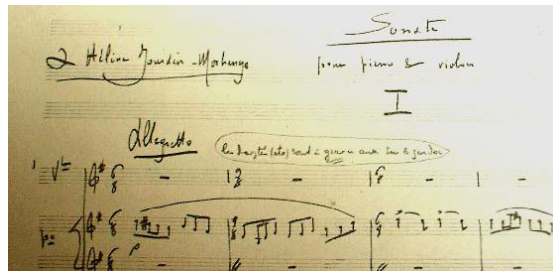 Sonate
à Hélène Jourdan-Morhange
pour piano & violon
I
Allegretto
Von
po
p